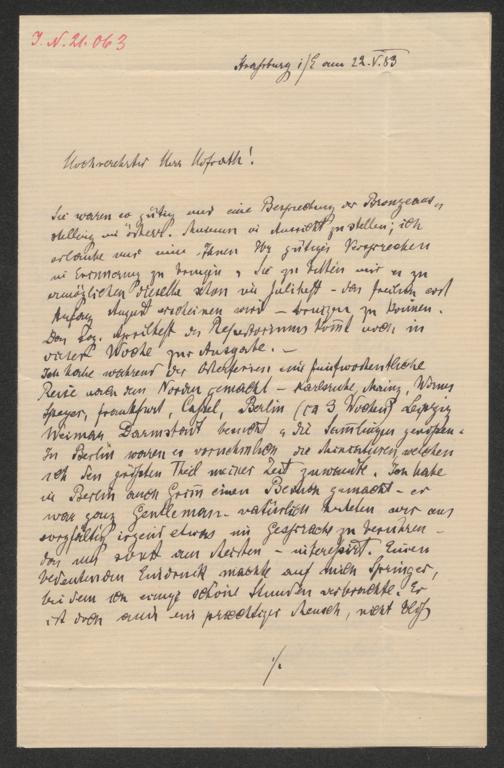 I. N. 21.063
Straßburg i/E am 22.V.83
Hochverehrter Herr Hofrath!
Sie waren so gütig mir eine Besprechung der Bronzeaus-
stellung im österr. Museum in Aussicht zu stellen; ich
erlaube mir nun Ihnen Ihr gütiges Versprechen
in Erinnerung zu bringen, Sie zu bitten mir es zu
ermöglichen dieselbe schon im Juliheft – das freilich erst
Anfang August erscheinen wird – bringen zu können.
Das sog. Aprilheft des Repertoriums kommt noch in
dieser Woche zur Ausgabe. –
Ich habe während der Osterferien eine fünfwochentliche
Reise nach dem Norden gemacht – Karlsruhe, Mainz, Worms
Speyer, Frankfurt, Cassel, Berlin (ca 3 Wochen) Leipzig
Weimar, Darmstadt besucht & die Sammlungen genossen.
In Berlin waren es vornehmlich die Miniaturen, welchen
ich den größten Theil meiner Zeit zuwandte. Ich habe
in Berlin auch Grimm einen Besuch gemacht – er
war ganz Gentleman – natürlich hüteten wir uns
sorgfältig irgend etwas im Gespräche zu berühren –
das uns sonst am Meisten – interessirt. Einen
bedeutenden Eindruck machte auf mich Springer,
bei dem ich einige schöne Stunden verbrachte. Er
ist doch auch ein prächtiger Mensch, nicht bloß
./.